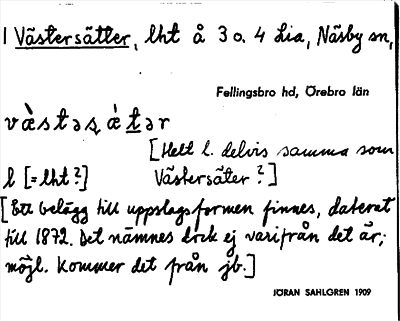 1 Västersätter, lht å 3 o. 4 Lia, Näsby sn,
Fellingsbro hd, Örebro län
væ̀stəʂǽtər
[Helt l. delvis samma som
l [= lht?] Västersäter?]
[Ett belägg till uppslagsformen finnes, daterat
till 1872. Det nämnes dock ej varifrån det är;
möjl. kommer det från jb.]
JÖRAN SAHLGREN 1909